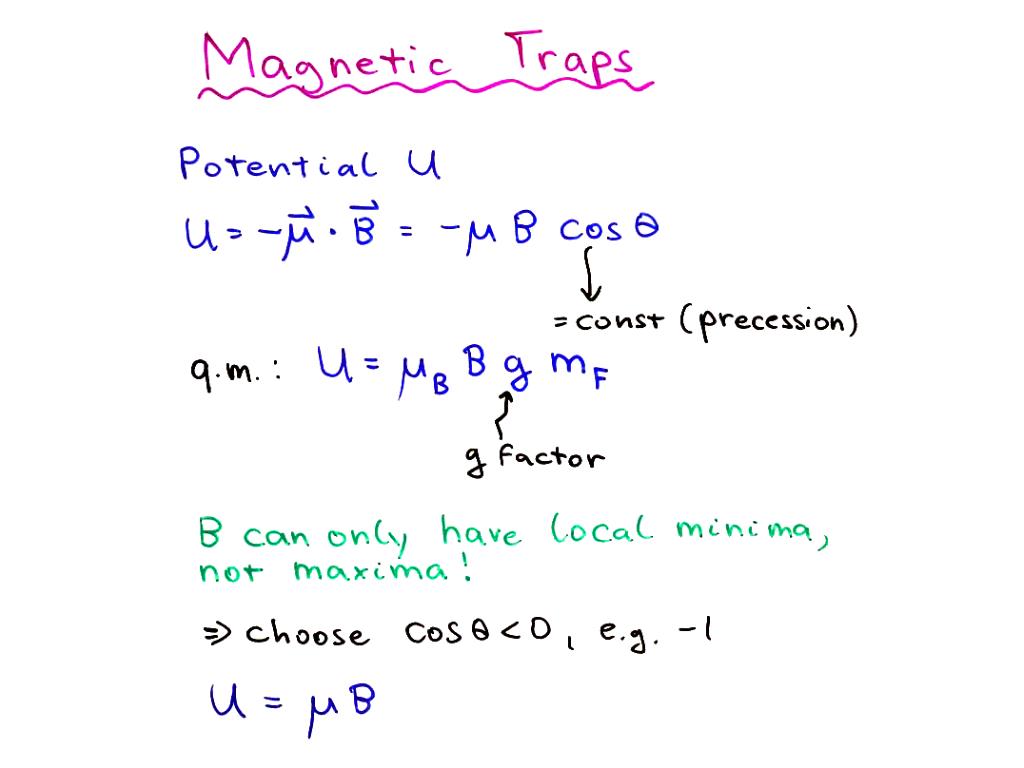 Magnetic Traps
Potential U
U = -μ⃗ · B⃗ = -μ B cos θ
= const (precession)
q.m.: U = μ_B B g m_F
g factor
B can only have local minima,
not maxima!
⇒ choose cos θ < 0, e.g. -1
U = μ B